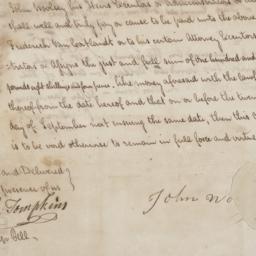 John Wooley his Heirs Executors or Administrators
shall well and truly pay or cause to be paid unto the above
Frederick Van Cortlandt or to his certain Attorney Executors
strators or Assigns the just and full sum of one hundred and
pounds eight shillings and four pence like money aforesaid with the lawfu
thereof from the date hereof and that on or before the twen
day of September next ensuing the same date, then this O
is to be void otherwise to remain in full force and virtue
and Delivered
presence of us
Tompkins
Bell.
John Wo